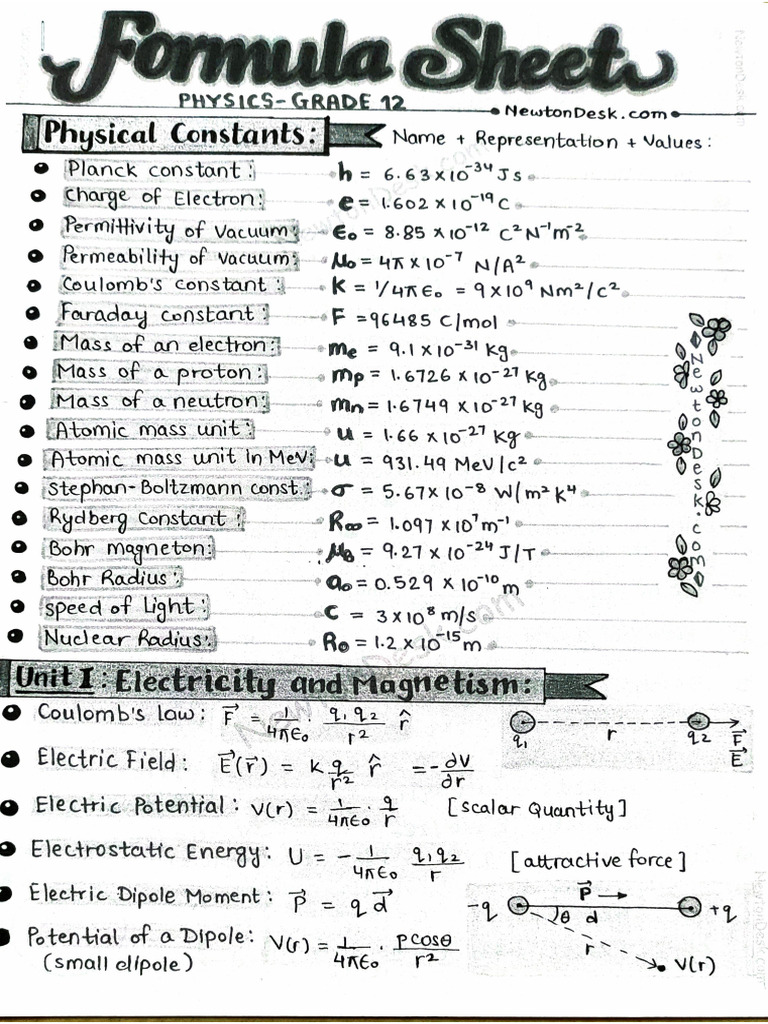 Formula Sheet
PHYSICS-GRADE 12
NewtonDesk.com
Physical Constants: Name + Representation + Values:
Planck constant: h = 6.63×10⁻³⁴ Js
Charge of Electron: e = 1.602×10⁻¹⁹ C
Permittivity of Vacuum: ε₀ = 8.85 × 10⁻¹² C²N⁻¹m⁻²
Permeability of Vacuum: μ₀ = 4π × 10⁻⁷ N/A²
Coulomb's constant: K = 1/4πε₀ = 9×10⁹ Nm²/c²
Faraday constant: F = 96485 C/mol
Mass of an electron: me = 9.1×10⁻³¹ Kg
Mass of a proton: mp = 1.6726 × 10⁻²⁷ Kg
Mass of a neutron: mn = 1.6749 × 10⁻²⁷ Kg
Atomic mass unit: u = 1.66 × 10⁻²⁷ Kg
Atomic mass unit In MeV: u = 931.49 MeV/c²
Stephan-Boltzmann const.: σ = 5.67× 10⁻⁸ W/m² K⁴
Rydberg Constant: R∞ = 1.097 × 10⁷ m⁻¹
Bohr magneton: μB = 9.27 × 10⁻²⁴ J/T
Bohr Radius: a₀ = 0.529 × 10⁻¹⁰ m
speed of Light: C = 3×10⁸ m/s
Nuclear Radius: R₀ = 1.2 × 10⁻¹⁵ m
NewtonDesk.com
Unit I: Electricity and Magnetism:
Coulomb's law: F⃗ = 1/4πε₀ · q₁q₂/r² r̂
q₁ r q₂ F⃗
E⃗
Electric Field: E⃗(r⃗) = K q/r² r̂ = -∂V/∂r
Electric Potential: V(r) = 1/4πε₀ · q/r [scalar Quantity]
Electrostatic Energy: U = - 1/4πε₀ q₁q₂/r [attractive force]
Electric Dipole Moment: P⃗ = q d⃗
P⃗
-q θ d +q
r
V(r)
Potential of a Dipole: V(r) = 1/4πε₀ · Pcosθ/r²
(small dipole)
NewtonDesk.com
NewtonDesk.com